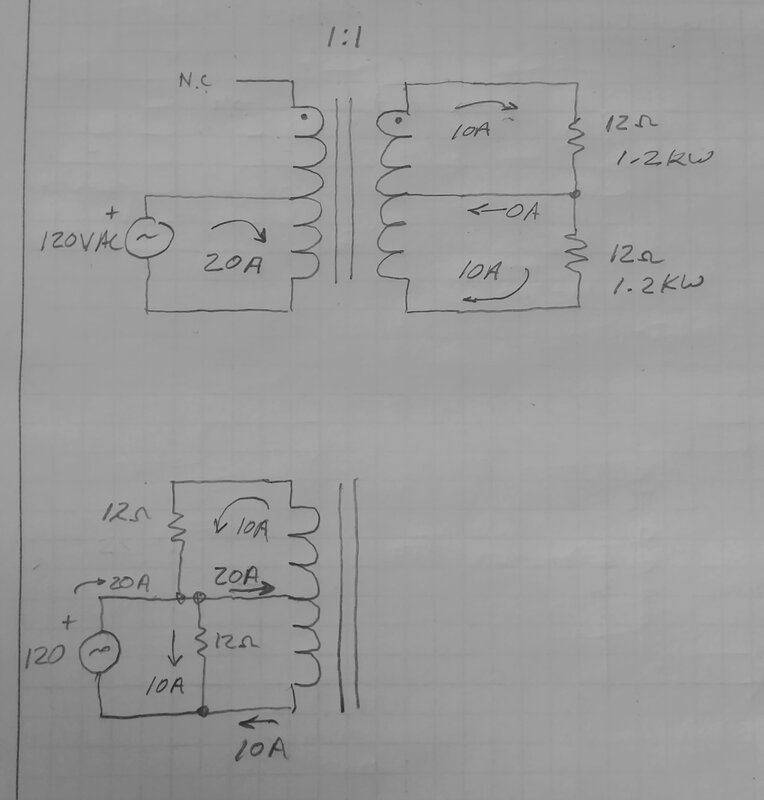 1:1
N.C
10A
12Ω
1.2KW
+
120VAC
20A
0A
10A
12Ω
1.2KW
12Ω
10A
20A
20A
+
120
12Ω
10A
10A